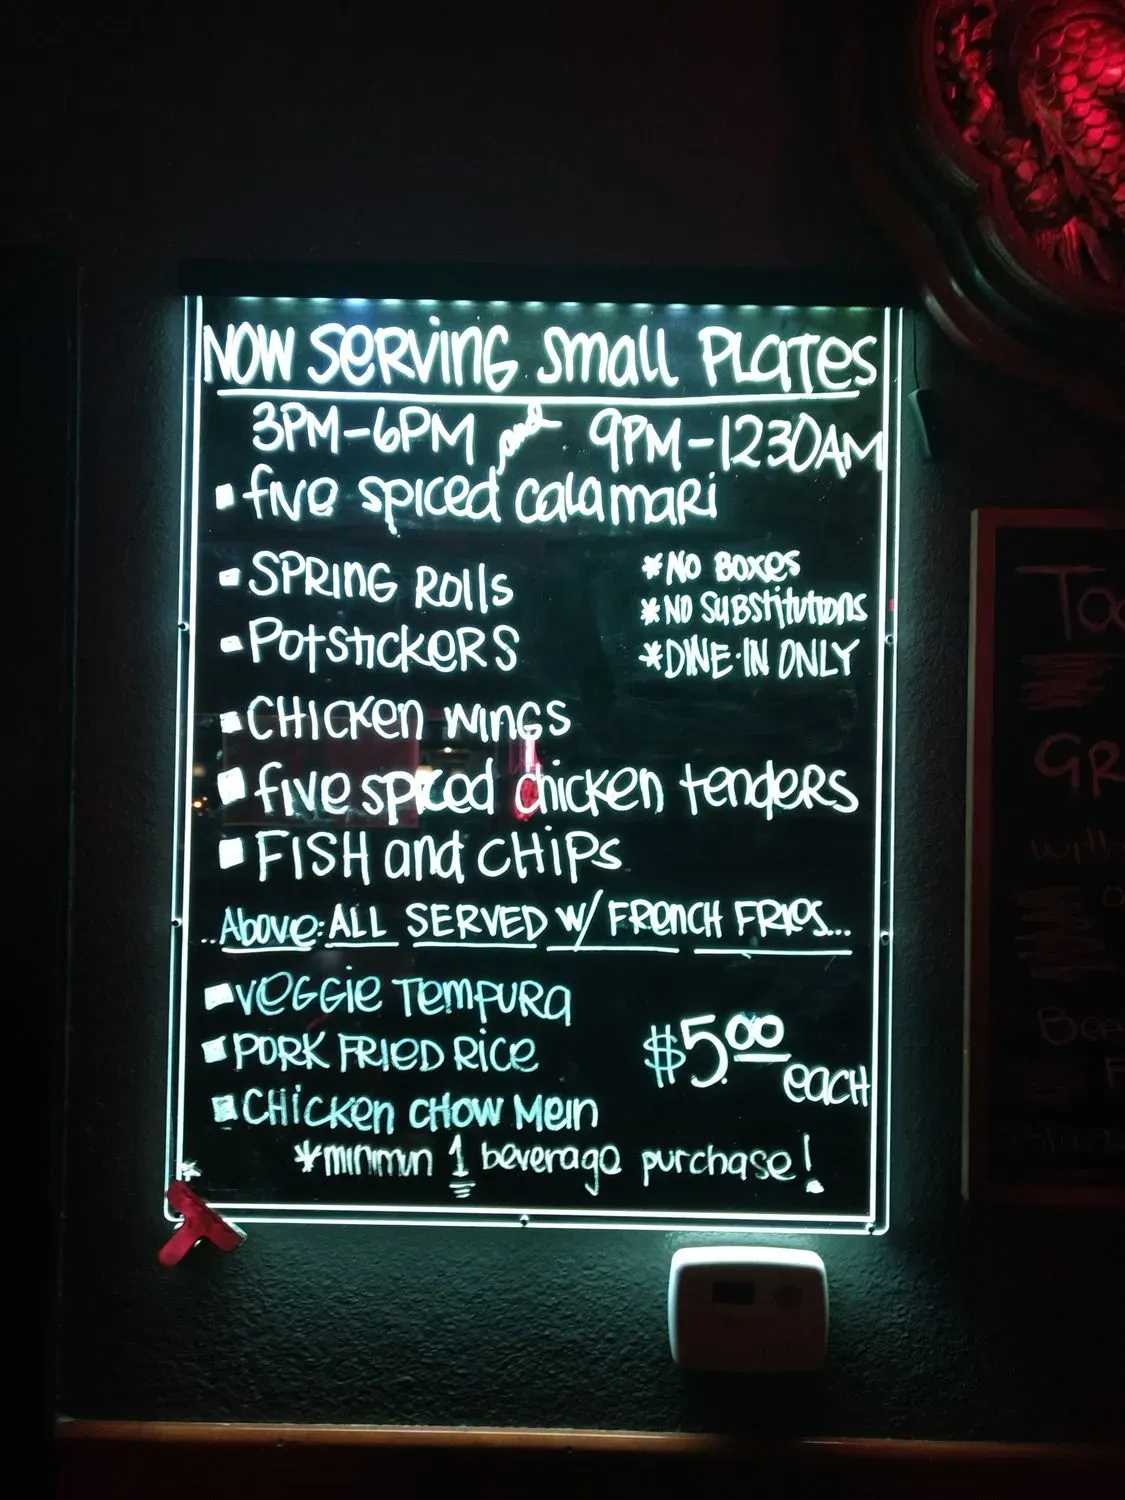 NOW SERVING SMALL PLATES
3PM-6PM and 9PM-1230AM
▪ five spiced calamari
▪ SPRING ROLLS
*NO BOXES
*NO SUBSTITUTIONS
▪ POTSTICKERS
*DINE-IN ONLY
▪ CHICKEN WINGS
▪ five spiced chicken tenders
▪ FISH and CHIPS
..Above: ALL SERVED W/ FRENCH FRIES...
▪ VEGGIE TEMPURA
▪ PORK FRIED RICE
$5.00 each
▪ CHICKEN CHOW MEIN
*minimun 1 beverage purchase!